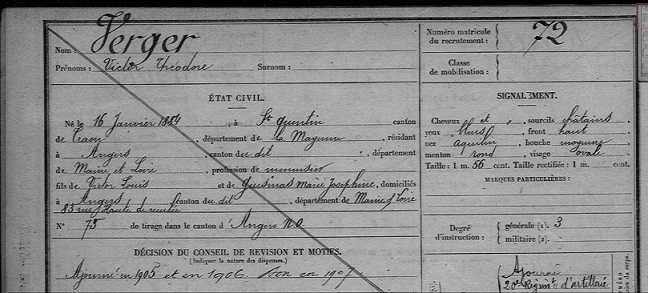 Nom : Verger
Prénoms : Victor Théodore Surnom :
Numéro matricule
du recrutement : 72
Classe
de mobilisation :
ÉTAT CIVIL.
Né le 16 Janvier 1884, à St Quentin canton
de Craon, département de la Mayenne, résidant
à Angers canton du dit, département
de Maine et Loire, profession de menuisier
fils de Victor Louis et de Marie Josephine, domiciliés
à Angers, canton du dit, département de Maine et Loire
83 rue
N° 75 de tirage dans le canton d'Angers N.O
DÉCISION DU CONSEIL DE REVISION ET MOTIFS.
(Indiquer la nature des dispenses.)
Ajourné en 1905 et en 1906. Bon en 1907
SIGNALEMENT.
Cheveux et sourcils châtains
yeux bleus, front haut
nez aquilin, bouche moyenne
menton rond, visage ovale
Taille : 1 m. 56 cent. Taille rectifiée : 1 m. cent.
MARQUES PARTICULIÈRES :
Degré
d'instruction :
générale (1). 3
militaire (2).
Ajourné
20e Régimt d'artillerie